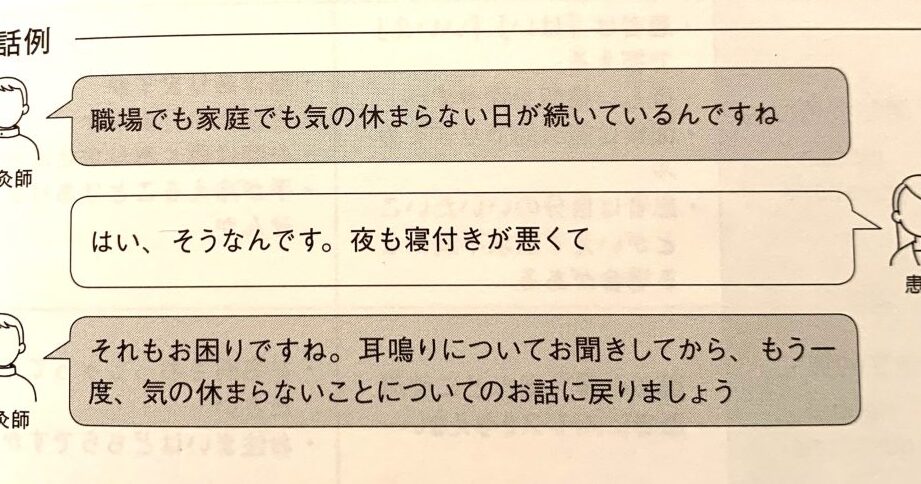 話例
職場でも家庭でも気の休まらない日が続いているんですね
灸師
はい、そうなんです。夜も寝付きが悪くて
患
それもお困りですね。耳鳴りについてお聞きしてから、もう一
度、気の休まらないことについてのお話に戻りましょう
灸師